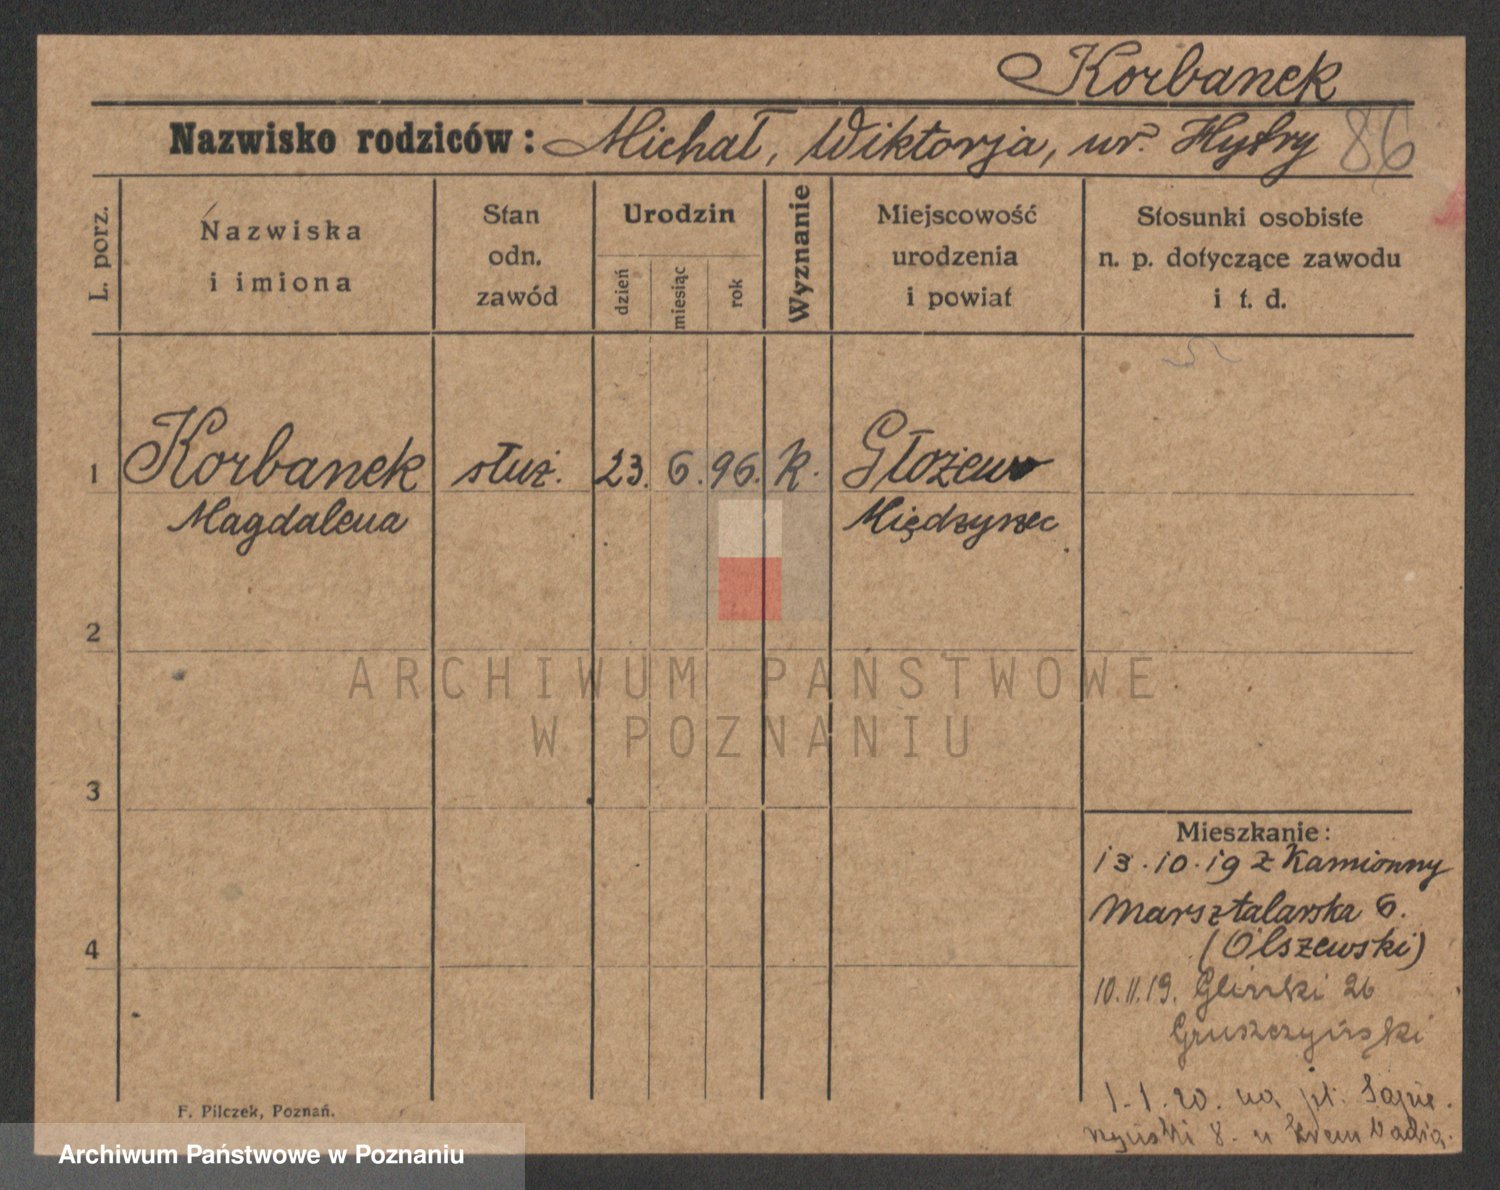 Korbanek
Nazwisko rodziców: Michał, Wiktorja, ur. Hybry
86
L. porz.
Nazwiska i imiona
Stan odn. zawód
Urodzin
dzień
miesiąc
rok
Wyznanie
Miejscowość urodzenia i powiat
Stosunki osobiste n. p. dotyczące zawodu i t. d.
1 Korbanek służ. 23. 6. 96. K. Głożew
Magdalena Międzyrzec
2
ARCHIWUM PAŃSTWOWE
W POZNANIU
3
Mieszkanie:
13.10.19 z Kamionny
Marsztalarska 6.
(Olszewski)
4
10.11.19. Gliński 26
Gruszczyński
1.1.20. na pl. Sapie-
żyński 8. u
F. Pilczek, Poznań.
Archiwum Państwowe w Poznaniu